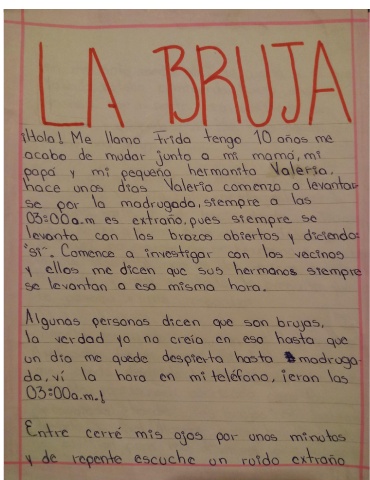 LA BRUJA
¡Hola! Me llamo Frida tengo 10 años me
acabo de mudar junto a mi mamá, mi
papá y mi pequeña hermanita Valeria.
hace unos días Valeria comenzo a levantar
se por la madrugada, siempre a las
03:00a.m es extraño, pues siempre se
levanta con los brazos abiertos y diciendo:
"si". Comence a investigar con los vecinos
y ellos me dicen que sus hermanos siempre
se levantan a esa misma hora.
Algunas personas dicen que son brujas,
la verdad yo no creía en eso hasta que
un día me quede despierta hasta madruga-
da, ví la hora en mi teléfono, ¡eran las
03:00a.m.!
Entre cerré mis ojos por unos minutos
y de repente escuche un ruido extraño